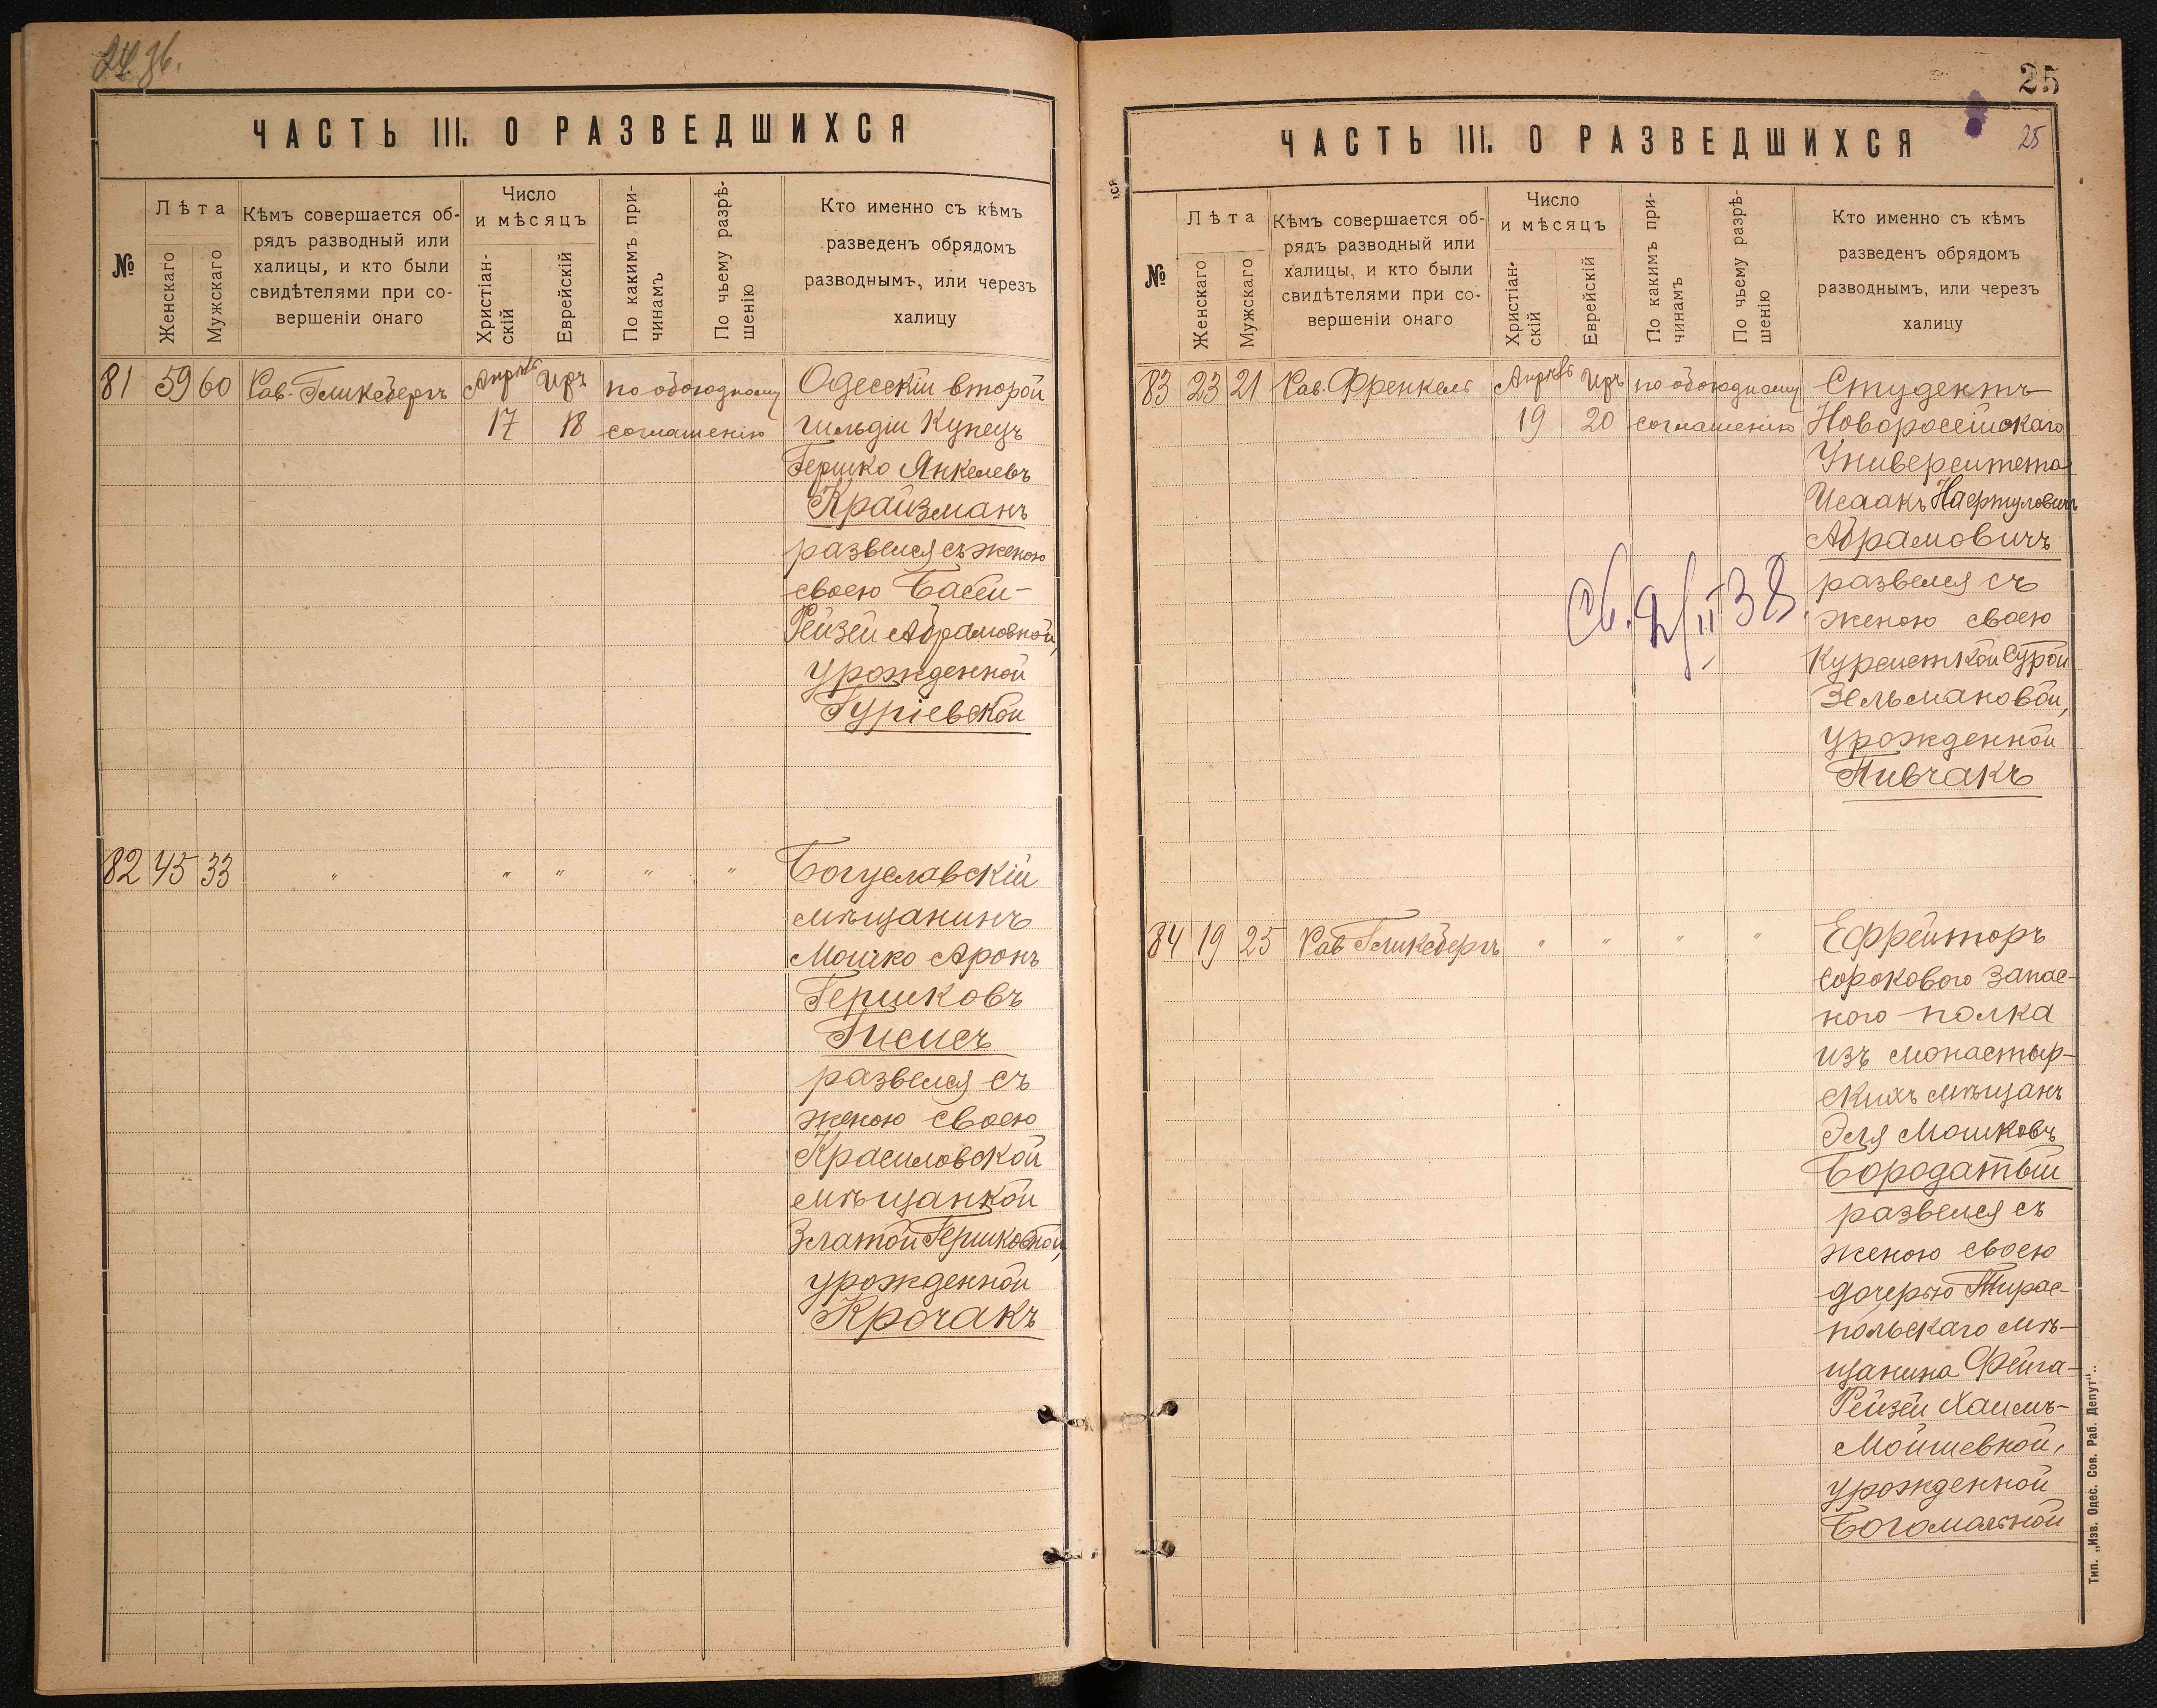 ЧАСТЬ III. О РАЗВЕДШИХСЯ
№
Лѣта
Женскаго
Мужскаго
Кѣмъ совершается об-
рядъ разводный или
халицы, и кто были
свидѣтелями при со-
вершеніи онаго
Число
и мѣсяцъ
Христіан-
скій
Еврейскій
По какимъ при-
чинамъ
По чьему разрѣ-
шенію
Кто именно съ кѣмъ
разведенъ обрядомъ
разводнымъ, или черезъ
халицу
81 59 60 Рав. Гликсбергъ Апрѣль Иръ по обоюдному Одесскій второй
17 18 соглашенію гильдіи Купецъ
Гершко Янкелевъ
Крайзманъ
развелся съ женою
своею Басей-
Рейзей Абрамовной,
урожденной
Гуріевской
82 45 33 " " " " " Богуславскій
мѣщанинъ
Мошко Аронъ
Гершковъ
Гисисъ
развелся съ
женою своею
Красиловской
мѣщанкой
Златой Гершковной,
урожденной
Крочакъ
25
ЧАСТЬ III. О РАЗВЕДШИХСЯ
25
№
Лѣта
Женскаго
Мужскаго
Кѣмъ совершается об-
рядъ разводный или
халицы, и кто были
свидѣтелями при со-
вершеніи онаго
Число
и мѣсяцъ
Христіан-
скій
Еврейскій
По какимъ при-
чинамъ
По чьему разрѣ-
шенію
Кто именно съ кѣмъ
разведенъ обрядомъ
разводнымъ, или черезъ
халицу
83 23 21 Рав. Френкель Апрѣль Иръ по обоюдному Студентъ
19 20 соглашенію Новороссійскаго
Университета
Исаакъ
Абрамовичъ
развелся съ
женою своею
Курсисткой Сурой
Зельмановой,
урожденной
Пивчакъ
84 19 25 Рав Гликсбергъ " " " " Ефрейторъ
сорокового запас-
ного полка
изъ монастыр-
скихъ мѣщанъ
Эля Мошковъ
Бородатый
развелся съ
женою своею
дочерью Тирас-
польскаго мѣ-
щанина Фейга-
Рейзей Хаимъ-
Мойшевной,
урожденной
Богомольной
Тип. „Изв. Одес. Сов. Раб. Депут“.